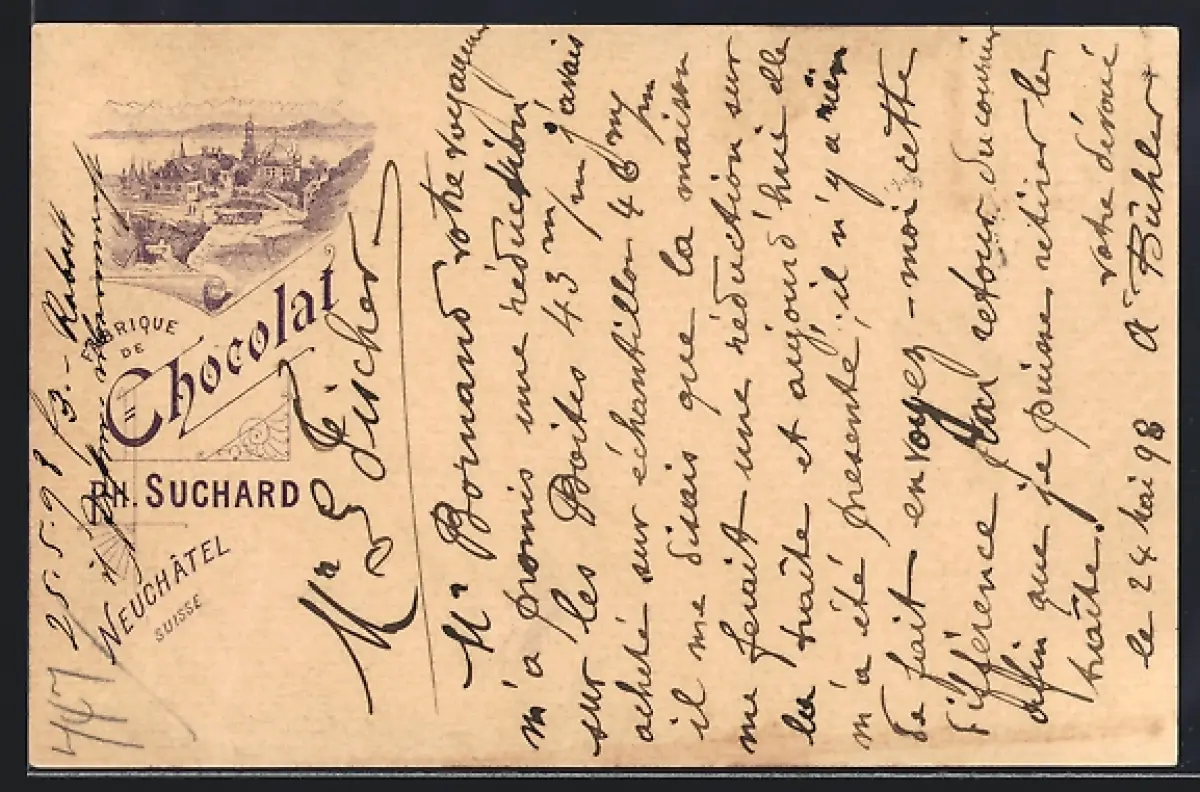 FABRIQUE
DE
Chocolat
PH. SUCHARD
NEUCHÂTEL
SUISSE
25.5.98
3.-
447
Mr E Fischer
Mr Bornand votre voyageur
m'a promis une réduction
sur les Boites 43 m/m j'avais
acheté sur échantillon 46 m/m
il me disais que la maison
me ferait une réduction sur
la traite et aujourd'hui elle
m'a été presenté, il n'y a rien
de fait envoyez-moi cette
différence par retour du courrier
afin que je puisse retirer la
traite.
votre dévoué
A Bühler
le 24 Mai 98